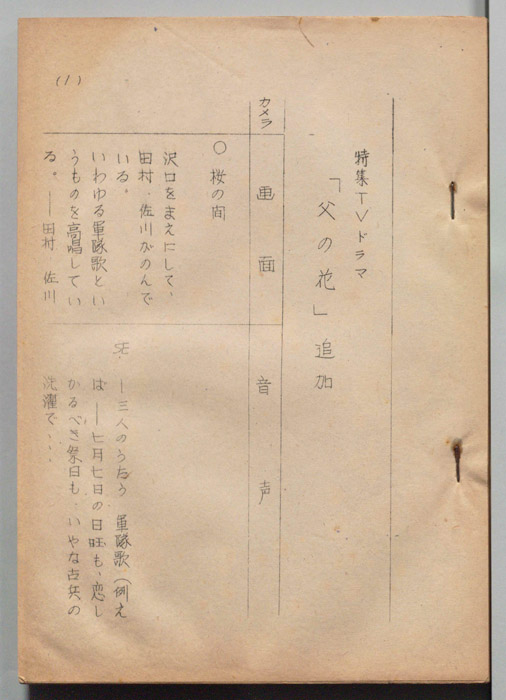 特集TVドラマ
「父の花」追加
カメラ
画面
音声
○ 桜の間
沢口をまえにして、
田村、佐川がのんで
いる。
いわゆる軍隊歌とい
うものを高唱してい
る。――田村 佐川
―三人のうたう 軍隊歌(例え
ば――七月七日の日旺も、恋し
かるべき祭日も、いやな古兵の
洗濯で・・・
(1)